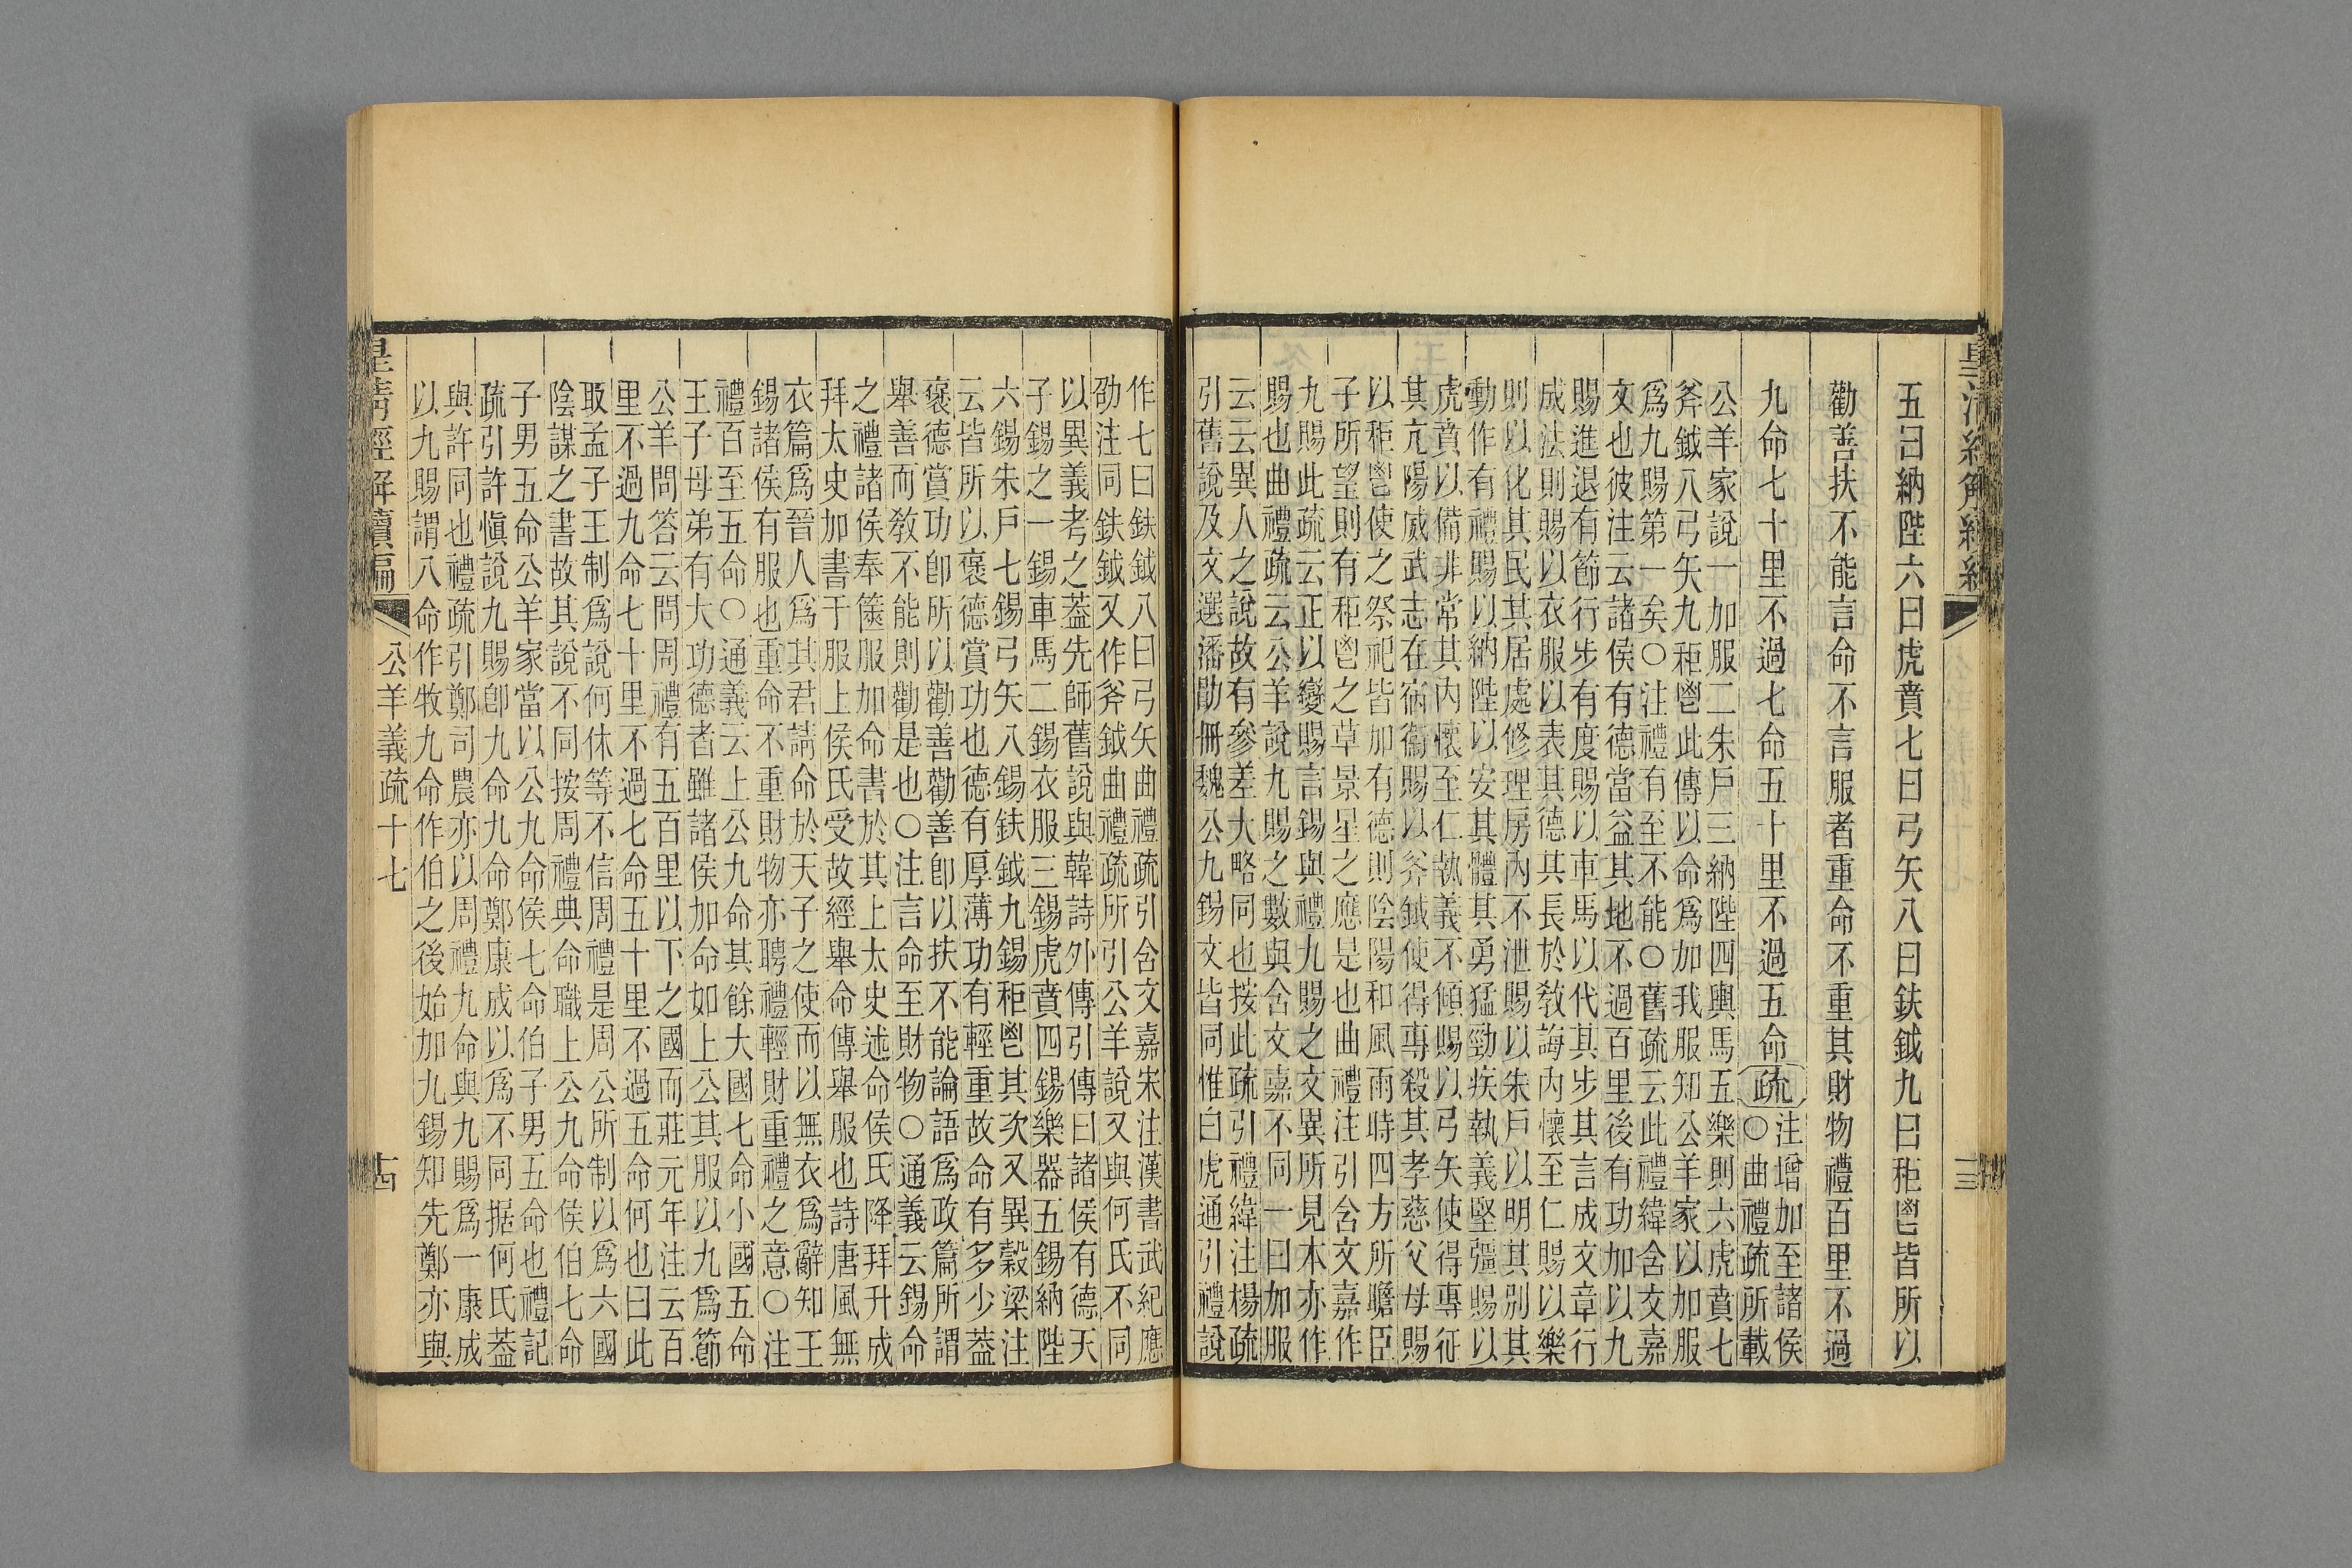 五曰納陛六曰虎賁七曰弓矢八曰鈇鉞九曰秬鬯皆所以
勸善扶不能言命不言服者重命不重其財物禮百里不過
九命七十里不過七命五十里不過五命疏
注增加至諸侯
○曲禮疏所載
公羊家說一加服二朱戶三納陛四輿馬五樂則六虎賁七
斧鉞八弓矢九秬鬯此傳以命爲加我服知公羊家以加服
爲九賜第一矣○注禮有至不能○舊疏云此禮緯含文嘉
文也彼注云諸侯有德當益其地不過百里後有功加以九
賜進退有節行步有度賜以車馬以代其步其言成文章行
成法則賜以衣服以表其德其長於敎誨內懷至仁賜以樂
則以化其民其居處修理房內不泄賜以朱戶以明其別其
動作有禮賜以納陛以安其體其勇猛勁疾執義堅彊賜以
虎賁以備非常其內懷至仁執義不傾賜以弓矢使得專征
其亢陽威武志在宿衞賜以斧鉞使得專殺其孝慈父母賜
以秬鬯使之祭祀皆加有德則陰陽和風雨時四方所瞻臣
子所望則有秬鬯之草景星之應是也曲禮注引含文嘉作
九賜此疏云正以變賜言錫與禮九賜之文異所見本亦作
賜也曲禮疏云公羊說九賜之數與含文嘉不同一曰加服
云云異人之說故有參差大略同也按此疏引禮緯注楊疏
引舊說及文選潘勖冊魏公九錫文皆同惟白虎通引禮說
作七曰鈇鉞八曰弓矢曲禮疏引含文嘉宋注漢書武紀應
劭注同鈇鉞又作斧鉞曲禮疏所引公羊說又與何氏不同
以異義考之葢先師舊說與韓詩外傳引傳曰諸侯有德天
子錫之一錫車馬二錫衣服三錫虎賁四錫樂器五錫納陛
六錫朱戶七錫弓矢八錫鈇鉞九錫秬鬯其次又異穀梁注
云皆所以褒德賞功也德有厚薄功有輕重故命有多少葢
褒德賞功卽所以勸善勸善卽以扶不能論語爲政篇所謂
舉善而敎不能則勸是也○注言命至財物○通義云錫命
之禮諸侯奉篋服加命書於其上太史述命侯氏降拜升成
拜太史加書于服上侯氏受故經舉命傳舉服也詩唐風無
衣篇爲晉人爲其君請命於天子之使而以無衣爲辭知王
錫諸侯有服也重命不重財物亦聘禮輕財重禮之意○注
禮百至五命○通義云上公九命其餘大國七命小國五命
王子母弟有大功德者雖諸侯加命如上公其服以九爲節
公羊問答云問周禮有五百里以下之國而莊元年注云百
里不過九命七十里不過七命五十里不過五命何也曰此
取孟子王制爲說何休等不信周禮是周公所制以爲六國
陰謀之書故其說不同按周禮典命職上公九命侯伯七命
子男五命公羊家當以公九命侯七命伯子男五命也禮記
疏引許愼說九賜卽九命九命鄭康成以爲不同据何氏葢
與許同也禮疏引鄭司農亦以周禮九命與九賜爲一康成
以九賜謂八命作牧九命作伯之後始加九錫知先鄭亦與
皇淸經解續編
公羊義疏十七
十四